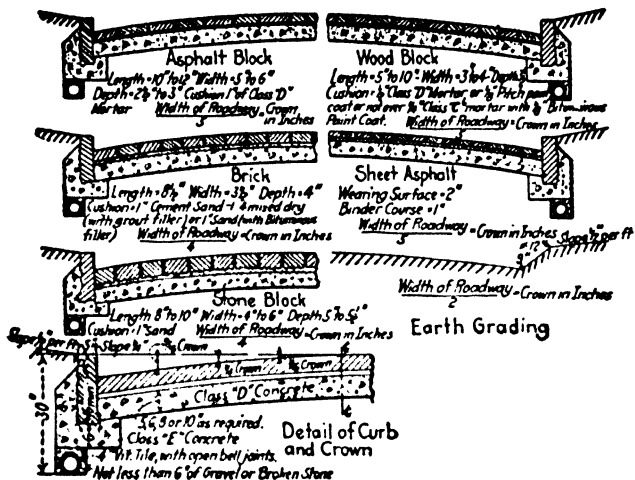 Asphalt Block
Length=10"to12" Width=5"to 6"
Depth=2½"to 3" Cushion 1"of Class "D"
Mortar Width of Roadway=Crown
5 in Inches
Wood Block
Length=5"to10" Width=3"to4"
Cushion=½"Class "D" Mortar, or ½" Pitch
coat or not over ½" Class "C" mortar with ⅛" Bituminous
Paint Coat. Width of Roadway=Crown in Inches
Brick
Length=8½" Width=3½" Depth=4"
Cushion=1" Cement Sand 1-4 mixed dry
(with grout filler) or 1" Sand (with Bituminous
filler) Width of Roadway=Crown in Inches
4
Sheet Asphalt
Wearing Surface=2"
Binder Course=1"
Width of Roadway=Crown in Inches
5
Slope ½" per ft
12"
Width of Roadway=Crown in Inches
2
Earth Grading
Stone Block
Length 8"to 10" Width=4"to 6" Depth 5"to 5½"
Cushion=1"sand Width of Roadway=Crown in Inches
4
Slope per ft Slope Crown
Crown Crown
30"
Class "D" Concrete
5,6,9 or 10" as required.
Class "E" Concrete
4" Vit. Tile, with open bell joints.
Not less than 6" of Gravel or Broken Stone
Detail of Curb
and Crown